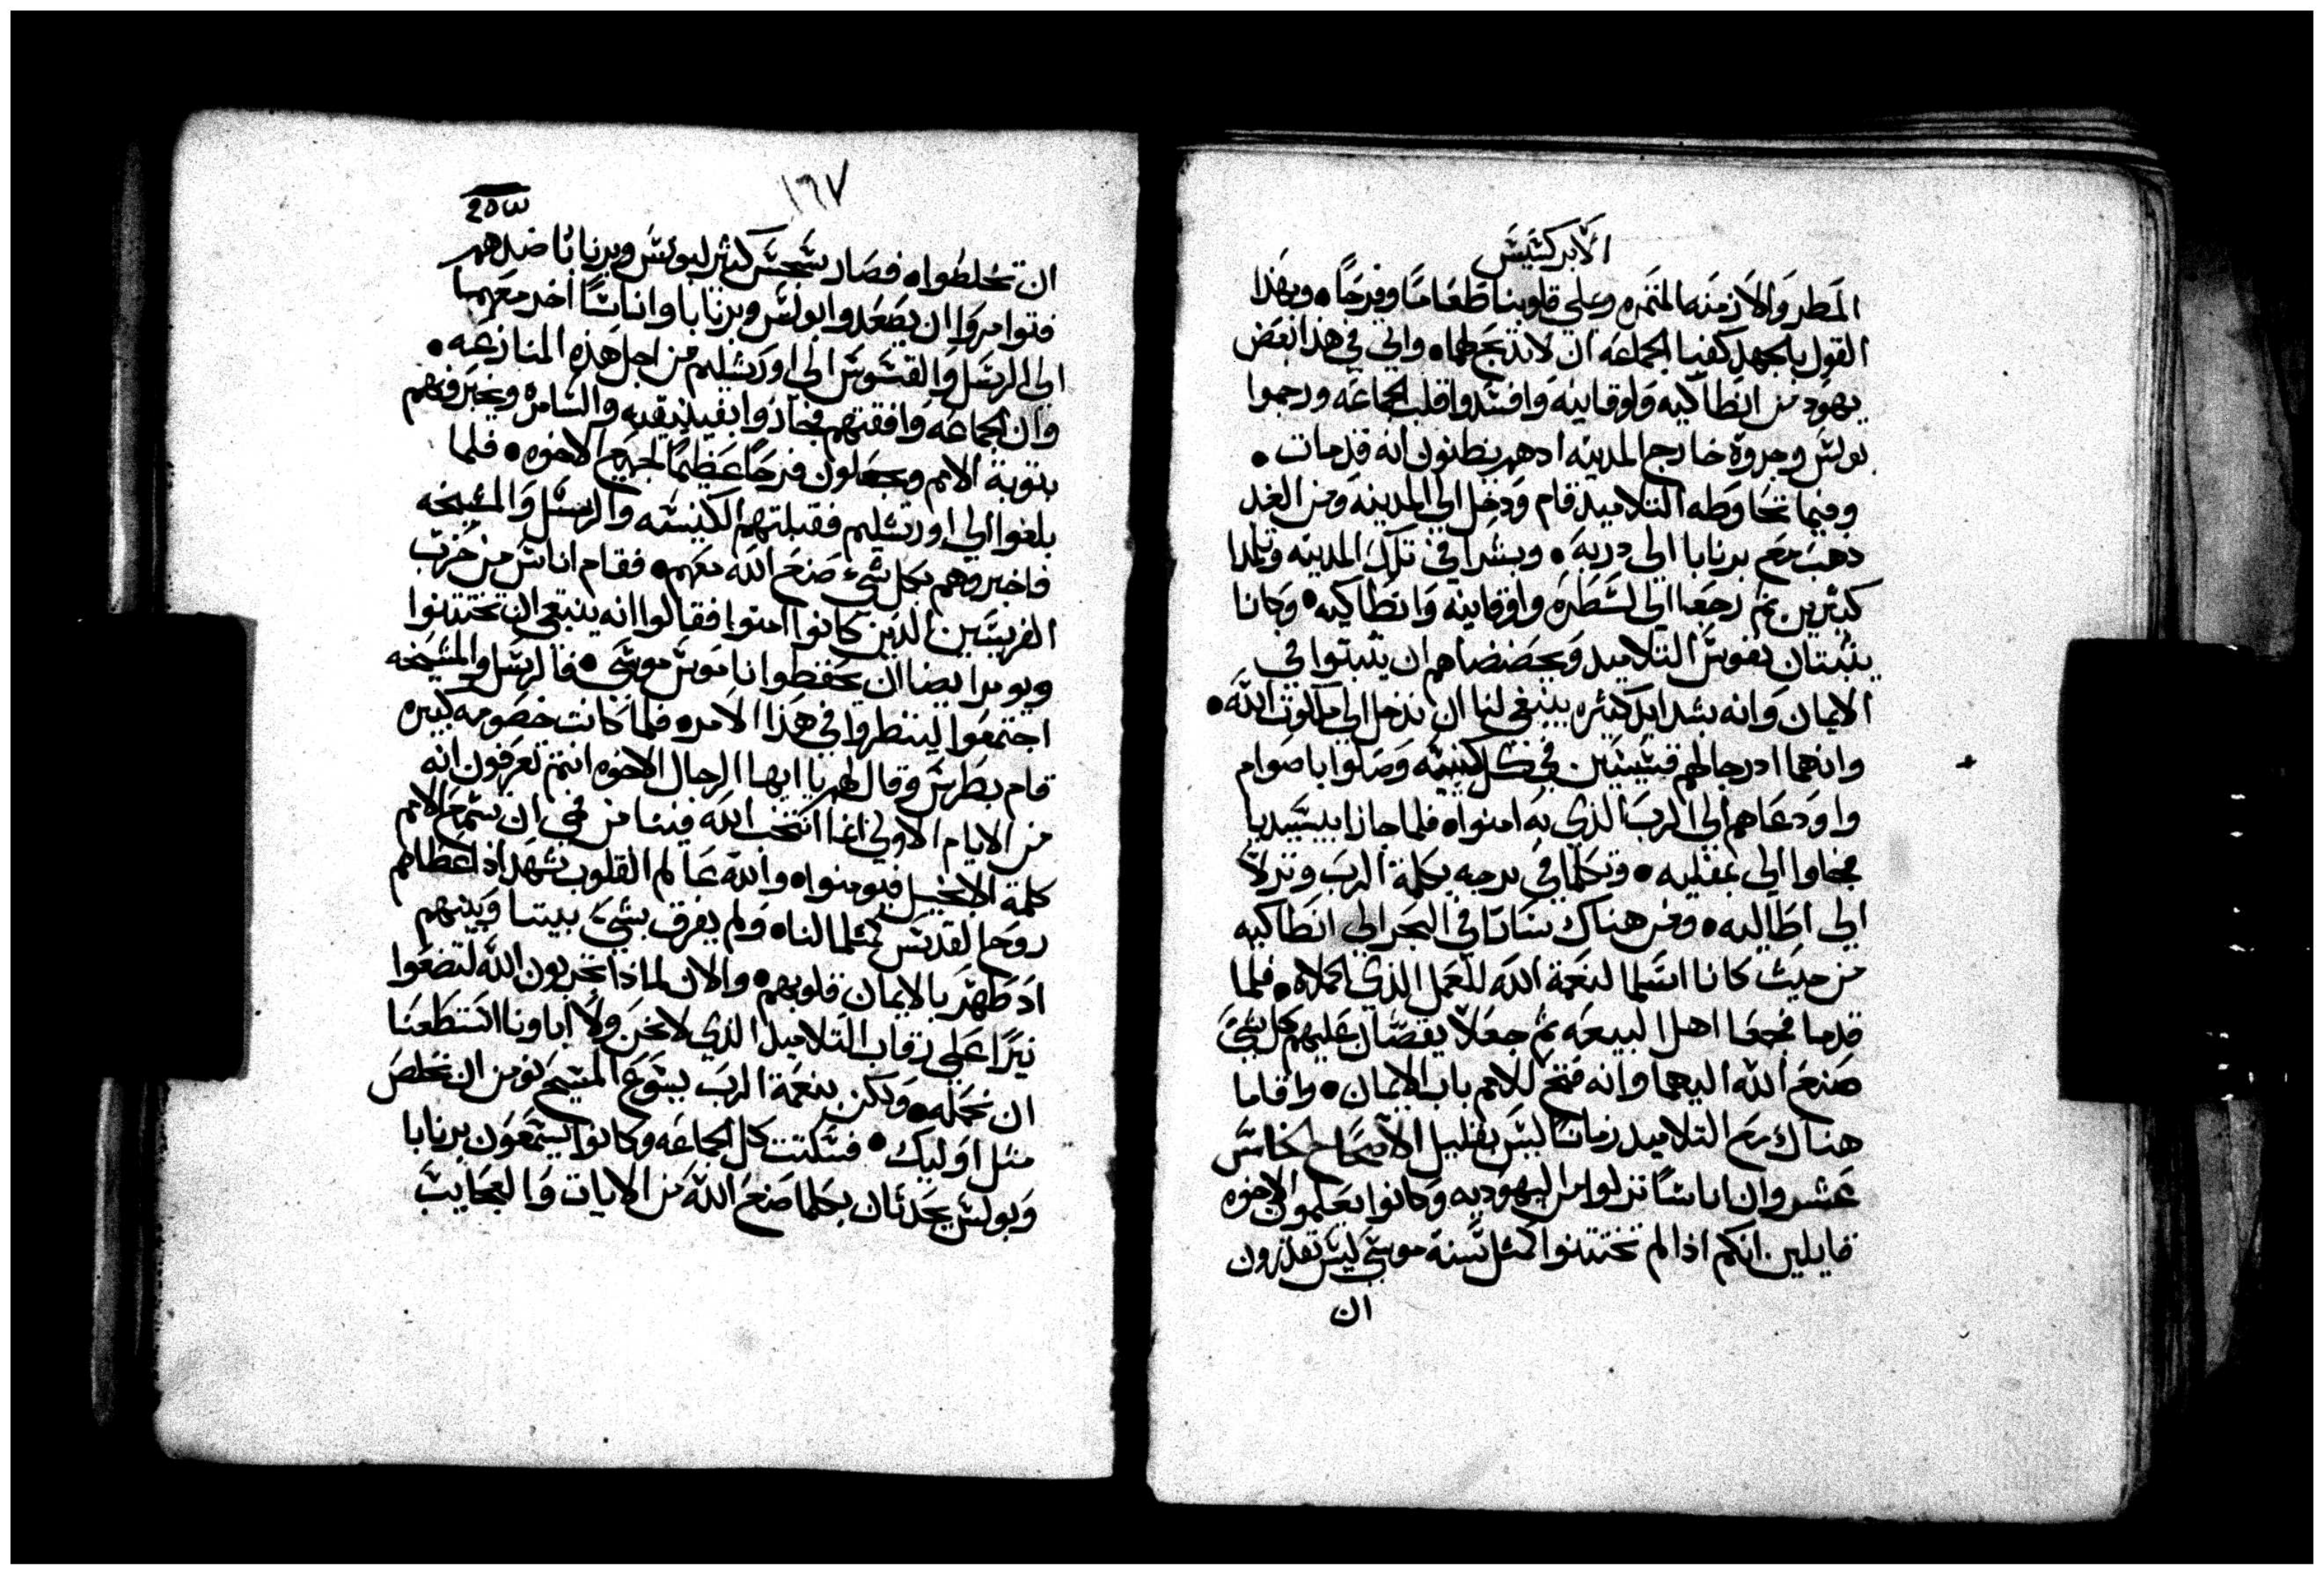 الابركسيس
المطر والازمنه المثمره وعلى قلوبنا طعاما وفرحا • وبهذا
القول بالجهد كفيا الجماعه ان لا تدبح لهما • واتي في هذا بعض
يهود من انطاكيه ولوقانيه وافسدوا قلب الجماعه ورجموا
بولس وجروة خارج المدينه ادهم يظنون انه قد مات •
وفيما تحاوطه التلاميد قام ودخل الي المدينه ومن الغد
دهب مع برنابا الي دربه • وبشرا في تلك المدينه وتلمدا
كثيرين ثم رجعا الي لسطره واوقانيه وانطاكيه • وكانا
يثبتان نفوس التلاميد ويحضضاهم ان يثبتوا في
الايمان وانه بشدايد كثيره ينبغي لنا ان ندخل الي ملكوت الله •
وانهما ادرجا لهم قسيسين في كل كنيسه وصلوا باصوام
واودعاهم الي الرب الذي به امنوا • فلما جازا بيسيديا
فجاوا الي بمفليه • وتكلما في برجه بكلمة الرب ونزلا
الي اطاليه • ومن هناك سارا في البحر الي انطاكيه
من حيث كانا اسلما لنعمة الله للعمل الذي اكملاه • فلما
قدما فجمعا اهل البيعه ثم جعلا يقصان عليهم كل شي
صنع الله اليهما وانه فتح للامم باب الايمان • واقاما
هناك مع التلاميد زمانا ليس بقليل الاصحاح الخامس
عشر وان اناسا نزلوا من اليهوديه وكانوا يعلمون الاخوه
قايلين انكم اذا لم تختتنوا كمثل سنة موسي ليس تقدرون
ان
١٦٧
ان تخلطوا • فصار سجس كثير لبولس وبرنابا ضدهم
فتوامروا ان يصعدوا بولس وبرنابا واناسا اخر معهما
الي الرسل والقسوس الي اورشليم من اجل هذه المنازعه •
وان الجماعه وافقتهم فجازوا بفينيقيه والسامره ويخبروهم
بتوبة الامم ويجعلون فرحا عظيما لجميع الاخوه • فلما
بلغوا الي اورشليم فقبلتهم الكنيسه والرسل والمشيخه
فاخبروهم بكل شيء صنع الله معهم • فقام اناس من حزب
الفريسين الذين كانوا امنوا فقالوا انه ينبغي ان تختتنوا
ويومرا ايضا ان يحفظوا ناموس موسي • فالرسل والمشيخه
اجتمعوا لينظروا في هذا الامر • فلما كانت خصومه كبيره
قام بطرس وقال لهم يا ايها الرجال الاخوه انتم تعرفون انه
من الايام الاولي انما انتخب الله فينا من فمي ان تسمع الامم
كلمة الانجيل فيومنوا • والله عالم القلوب شهد اذ اعطاهم
روح القدس كمثلما لنا • ولم يفرق بشي بيننا وبينهم
اذ طهر بالايمان قلوبهم • والان لماذا تجربون الله لتضعوا
نيرا علي رقاب التلاميد الذي لا نحن ولا اباونا استطعنا
ان نحمله • ولكن بنعمة الرب يسوع المسيح نومن ان نخلص
مثل اوليك • فسكتت كل الجماعه وكانوا يسمعون برنابا
وبولس يحدثان بكلما صنع الله من الايات والعجايب